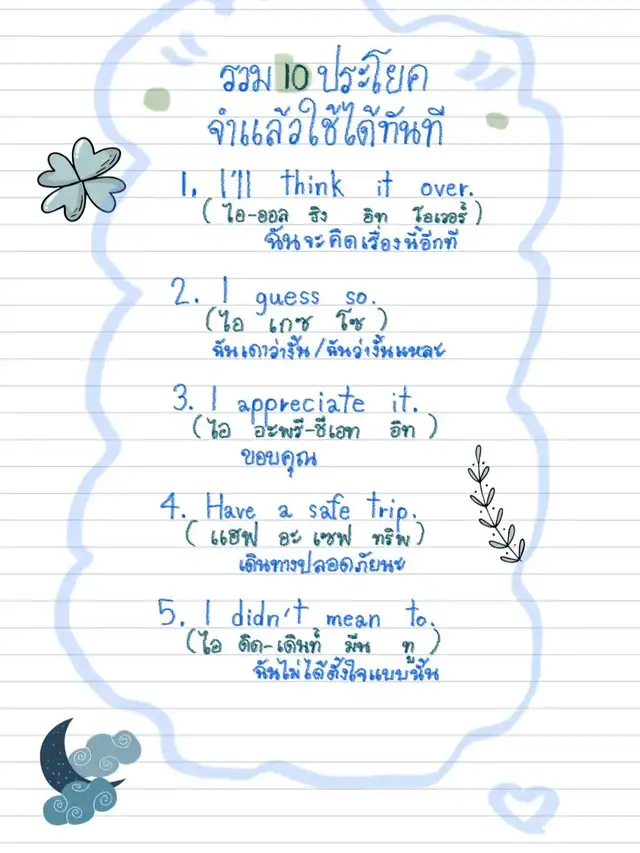 รวม 10 ประโยค
จำแล้วใช้ได้ทันที
1. I'll think it over.
(ไอ-ออล ธิง อิท โอเวอร์)
ฉันจะคิดเรื่องนี้อีกที
2. I guess so.
(ไอ เกซ โซ)
ฉันเดาว่างั้น/ฉันว่างั้นแหละ
3. I appreciate it.
(ไอ อะพรี-ชีเอท อิท)
ขอบคุณ
4. Have a safe trip.
(แฮฟ อะ เซฟ ทริพ)
เดินทางปลอดภัยนะ
5. I didn't mean to.
(ไอ ดิด-เดินท์ มีน ทู)
ฉันไม่ได้ตั้งใจแบบนั้น